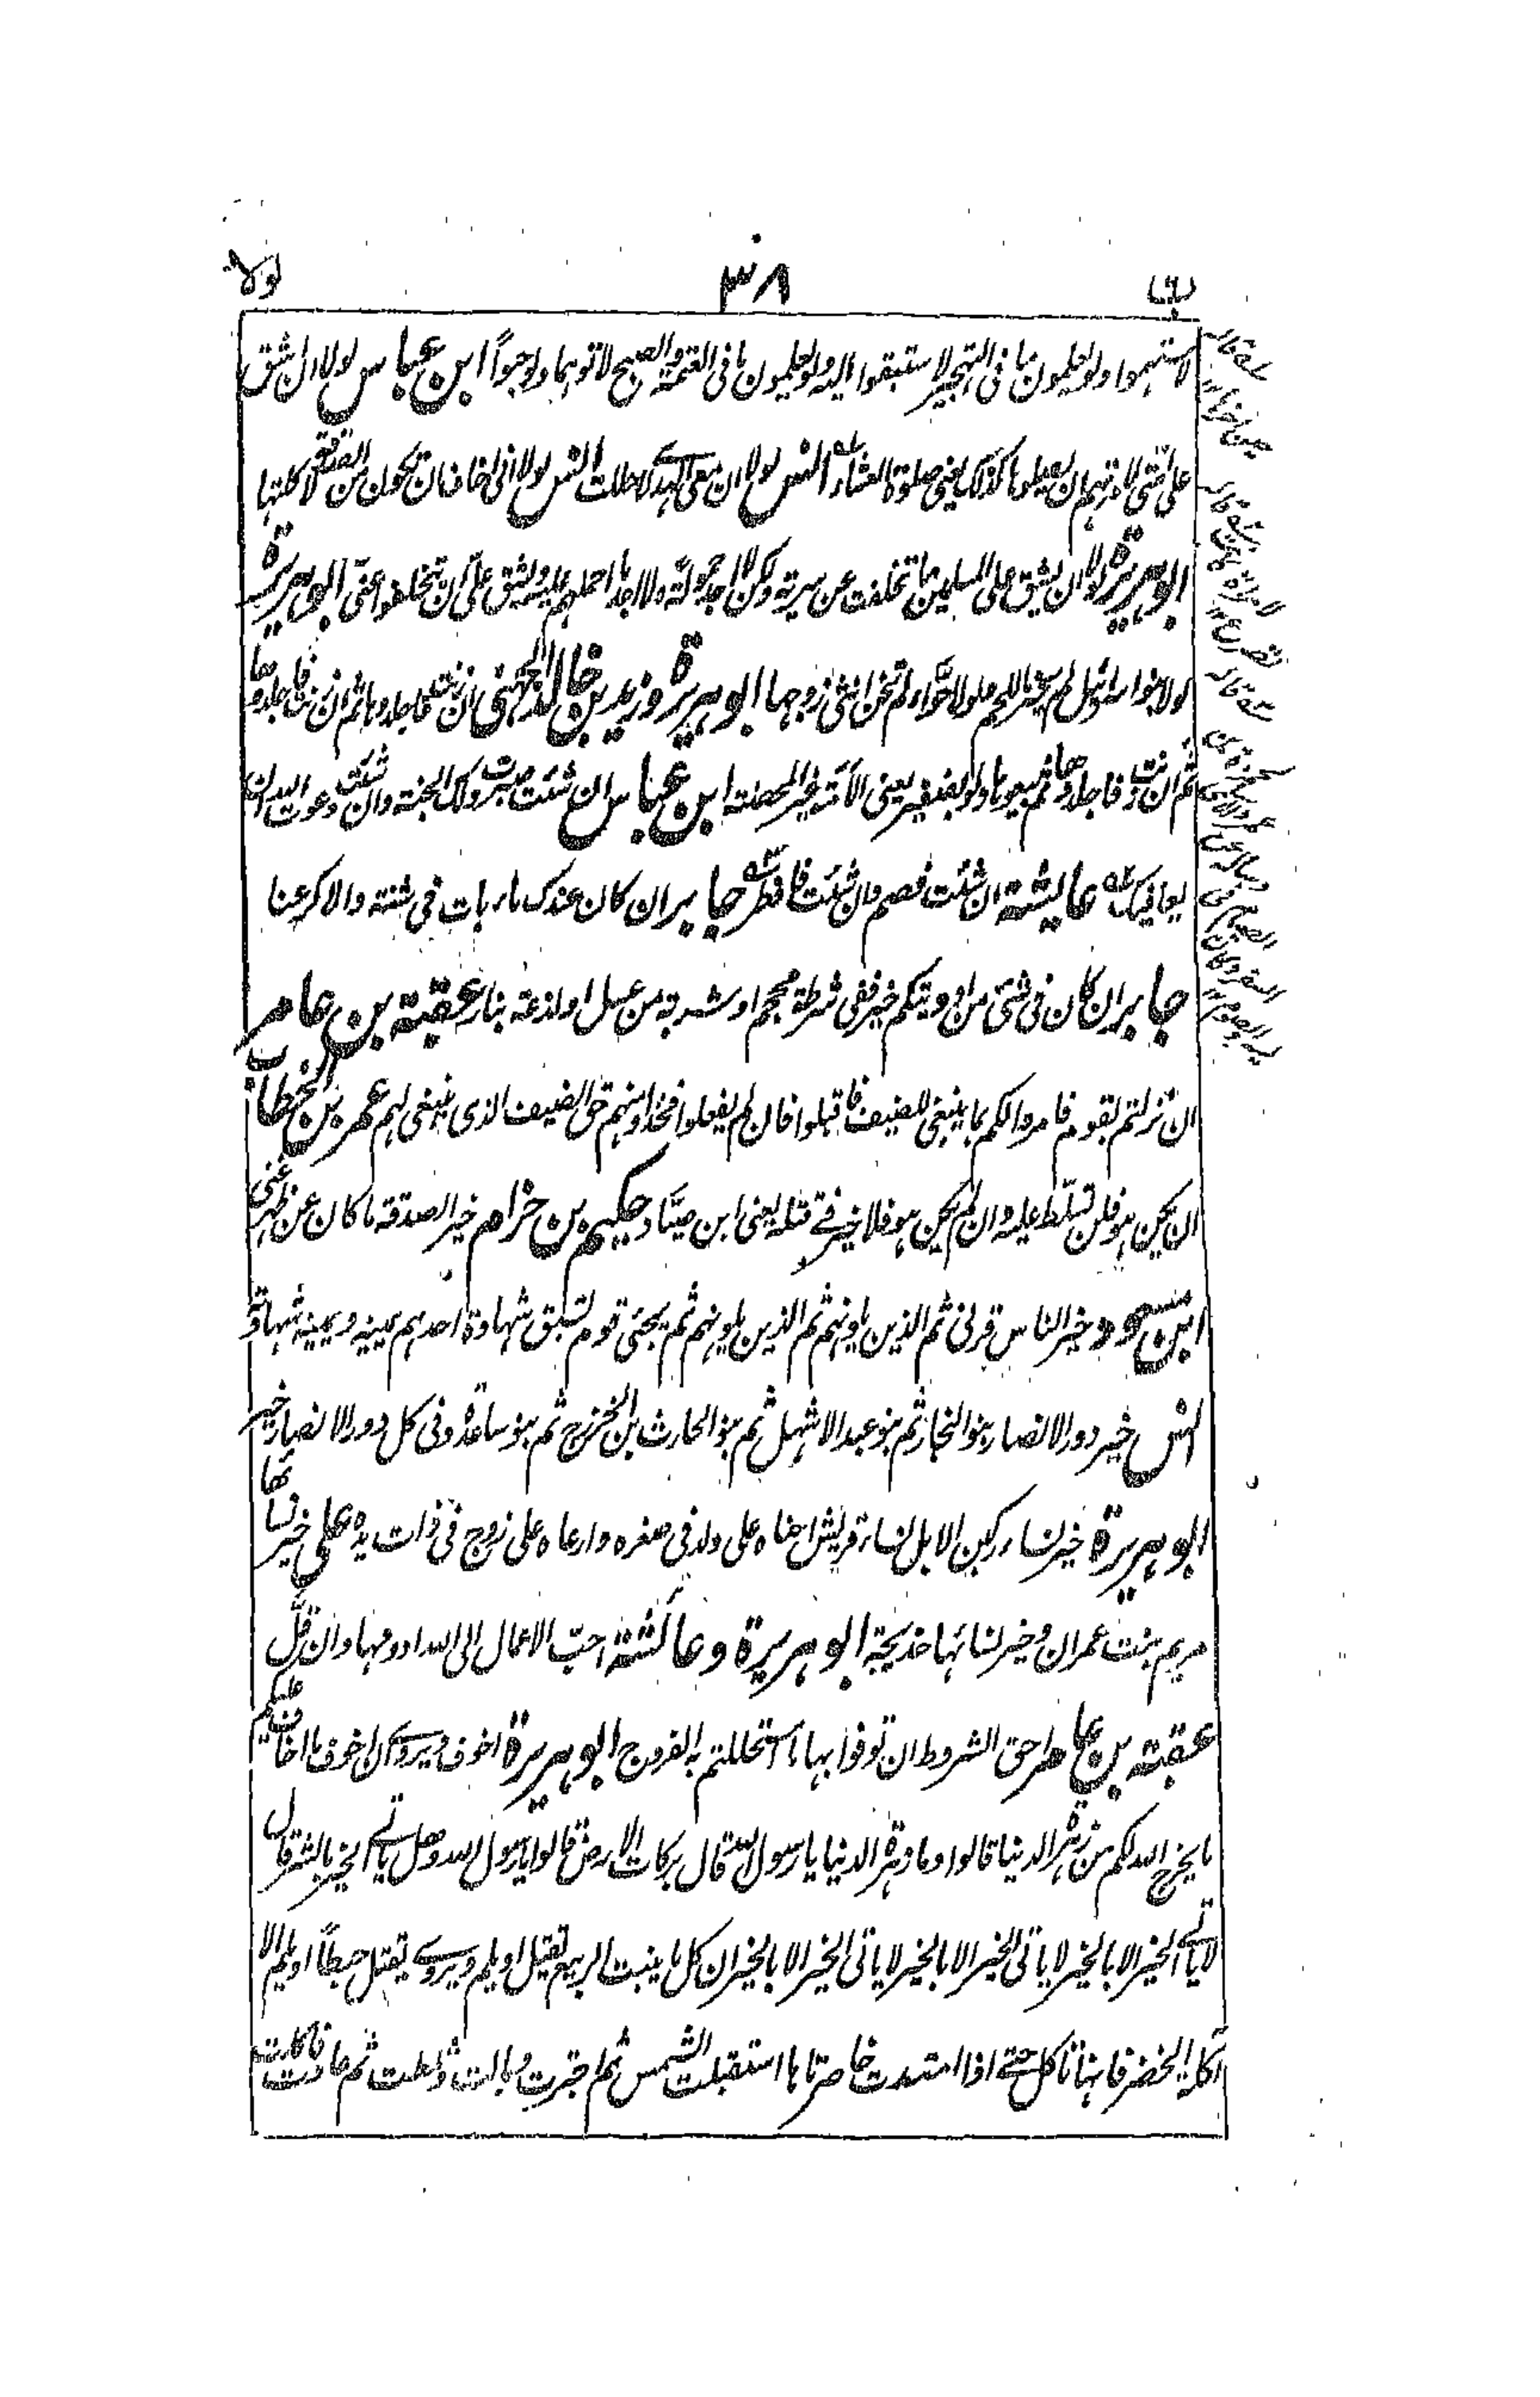 لولا
٣٨
لاستهموا ولو يعلمون ما فى التهجير لاستبقوا اليه ولو يعلمون ما فى العتمة والصبح لاتوهما ولو حبواً ابن عباس لولا ان اشق
على امتى لامرتهم ان يصلوها كذلك يعنى صلوة العشاء انس لولا ان معى الهدى لاحللت انس لولا انى اخاف ان تكون من الصدقة لاكلتها
ابو هريرة لولا ان يشق على المسلمين ما تخلفت عن سرية ولكن لا اجد حمولة ولا اجد ما احملهم عليه ويشق على ان تخلفوا عنى ابو هريرة
لولا بنو اسرائيل لم يخنز اللحم ولولا حوّاء لم تخن انثى زوجها ابو هريرة وزيد بن خالد الجهنى ان زنت فاجلدوها ثم ان زنت فاجلدوها
ثم ان زنت فاجلدوها ثم بيعوها ولو بضفير يعنى الامة غير المحصنة ابن عباس ان شئت صبرت ولك الجنة وان شئت دعوت الله ان
يعافيك عايشة ان شئت فصم وان شئت فافطر جابر ان كان عندك ماء بات فى شنة والا كرعنا
جابر ان كان فى شئ من ادويتكم خير ففى شرطة محجم او شربة من عسل او لذعة بنار عقبة بن عامر
ان نزلتم بقوم فامروا لكم بما ينبغى للضيف فاقبلوا فان لم يفعلوا فخذوا منهم حق الضيف الذى ينبغى لهم عمر بن الخطاب
ان يكن هو فلن تسلط عليه وان لم يكن هو فلا خير فى قتله يعنى ابن صياد حكيم بن حزام خير الصدقة ما كان عن ظهر غنى
ابن مسعود خير الناس قرنى ثم الذين يلونهم ثم الذين يلونهم ثم يجئ قوم تسبق شهادة احدهم يمينه ويمينه شهادته
انس خير دور الانصار بنو النجار ثم بنو عبد الاشهل ثم بنو الحارث بن الخزرج ثم بنو ساعدة وفى كل دور الانصار خير
ابو هريرة خير نساء ركبن الابل نساء قريش احناه على ولد فى صغره وارعاه على زوج فى ذات يده على خير نسائها
مريم بنت عمران وخير نسائها خديجة ابو هريرة وعائشة احبّ الاعمال الى الله ادومها وان قلّ
عقبة بن عامر احق الشروط ان توفوا بها ما استحللتم به الفروج ابو هريرة اخوف ويروى ان اخوف ما اخاف عليكم
ما يخرج الله لكم من زهرة الدنيا قالوا وما زهرة الدنيا يا رسول الله قال بركات الارض قالوا يا رسول الله وهل ياتى الخير بالشر قال
لا ياتى الخير الا بالخير لا ياتى الخير الا بالخير لا ياتى الخير الا بالخير ان كل ما ينبت الربيع يقتل او يلم ويروى يقتل حبطاً او يلم الا
آكلة الخضر فانها تاكل حتى اذا امتدت خاصرتاها استقبلت الشمس ثم اجترت وبالت وثلطت ثم عادت فاكلت